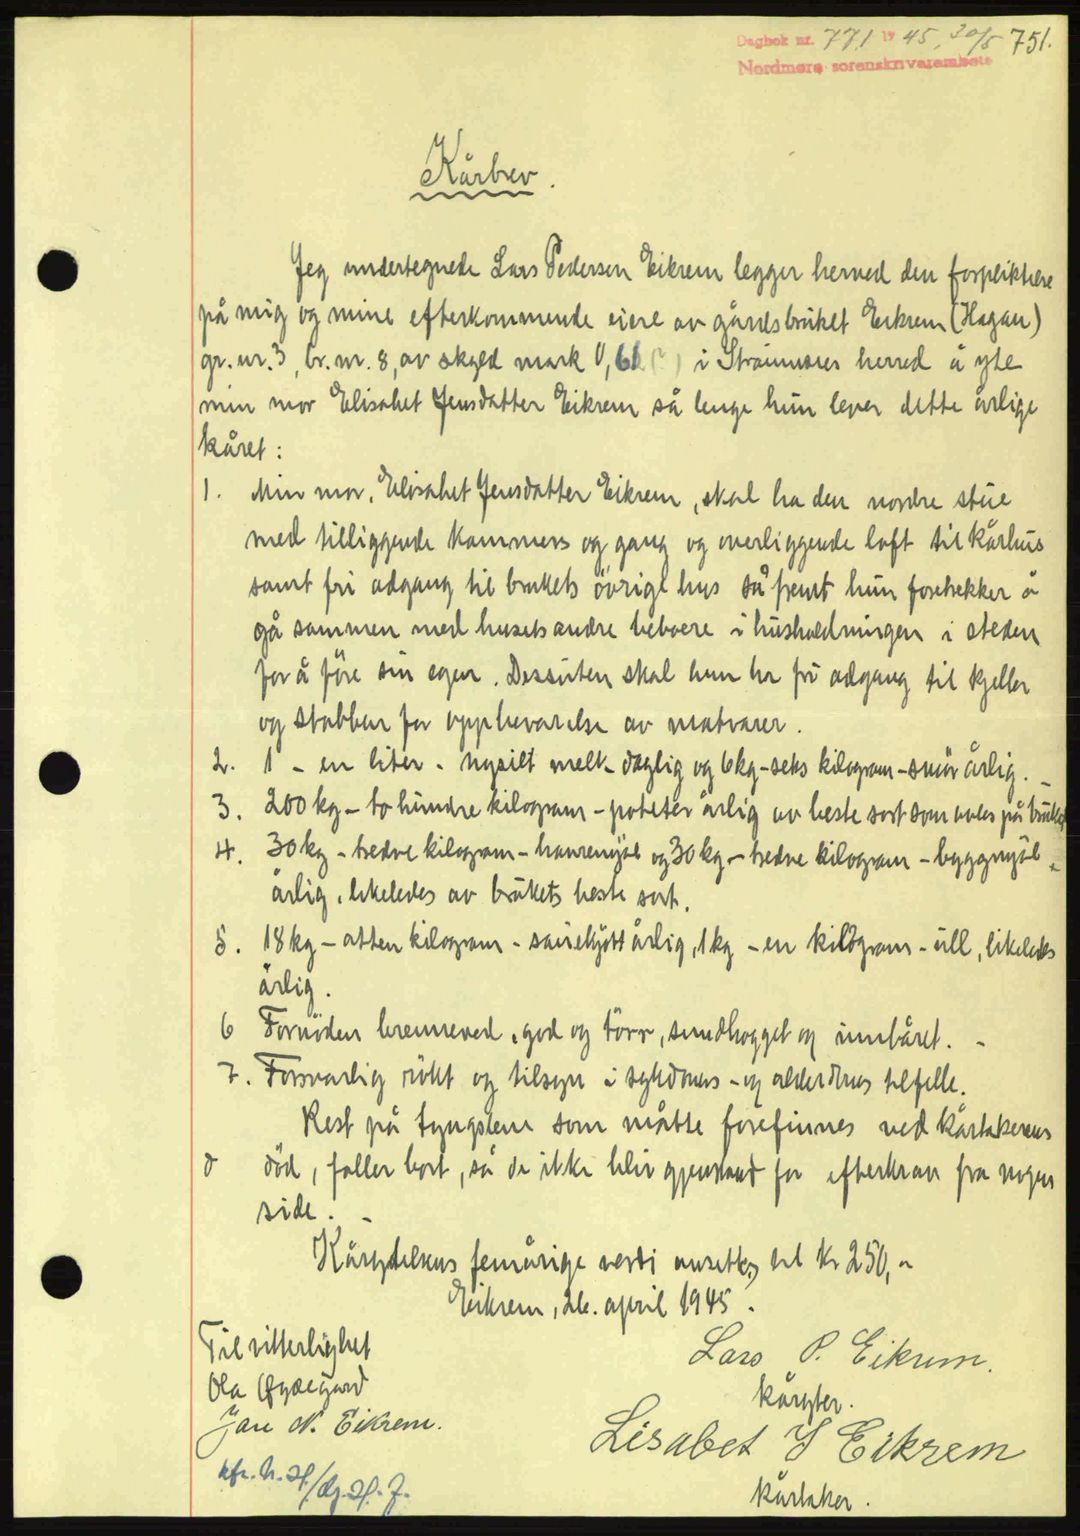 Dagbok nr. 771 19 45, 30/5 751.
Nordmøre sorenskriverembete
Kårbrev.
Jeg undertegnede Lars Pedersen Eikrem legger herved den forpliktelse
på mig og mine efterkommende eiere av gårdsbruket Eikrem (Hagan)
gr. nr. 3, br. nr. 8, av skyld mark 0,61 i Straumsnes herred å yte
min mor Elisabet Jensdatter Eikrem så lenge hun lever dette årlige
kåret:
1. Min mor, Elisabet Jensdatter Eikrem, skal ha den nordre stue
med tilliggende kammers og gang og overliggende loft til kårhus
samt fri adgang til brukets øvrige hus så fremt hun foretrekker å
gå sammen med husets andre beboere i husholdningen i steden
for å føre sin egen. Dessuten skal hun ha fri adgang til kjeller
og stabbur for oppbevarelse av matvarer.
2. 1 - en liter - nysilt melk daglig og 6 kg - seks kilogram - smör årlig. -
3. 200 kg - to hundre kilogram - poteter årlig av beste sort som avles på bruket
4. 30 kg - tredve kilogram - havremjöl og 30 kg - tredve kilogram - byggmjöl
årlig, likeledes av brukets beste sort.
5. 18 kg - atten kilogram - sauekjött årlig, 1 kg - en kilogram - ull, likeledes
årlig.
6 Fornöden brenneved, god og törr, smedhogget og innbåret. -
7. Forsvarlig rökt og tilsyn i sykdoms - og alderdoms tilfelle.
Rest på tyngslene som måtte forefinnes ved kårtakerens
d död, faller bort, så de ikke blir gjenstand for efterkrav fra nogen
side. -
Kårytelsens femårige verdi ansettes til kr 250,-
Eikrem, 26. april 1945.
Til vitterlighet
Lars P. Eikrem.
Ola Øydegard
kåryter.
Jens N. Eikrem.
Lisabet J Eikrem
kårtaker.